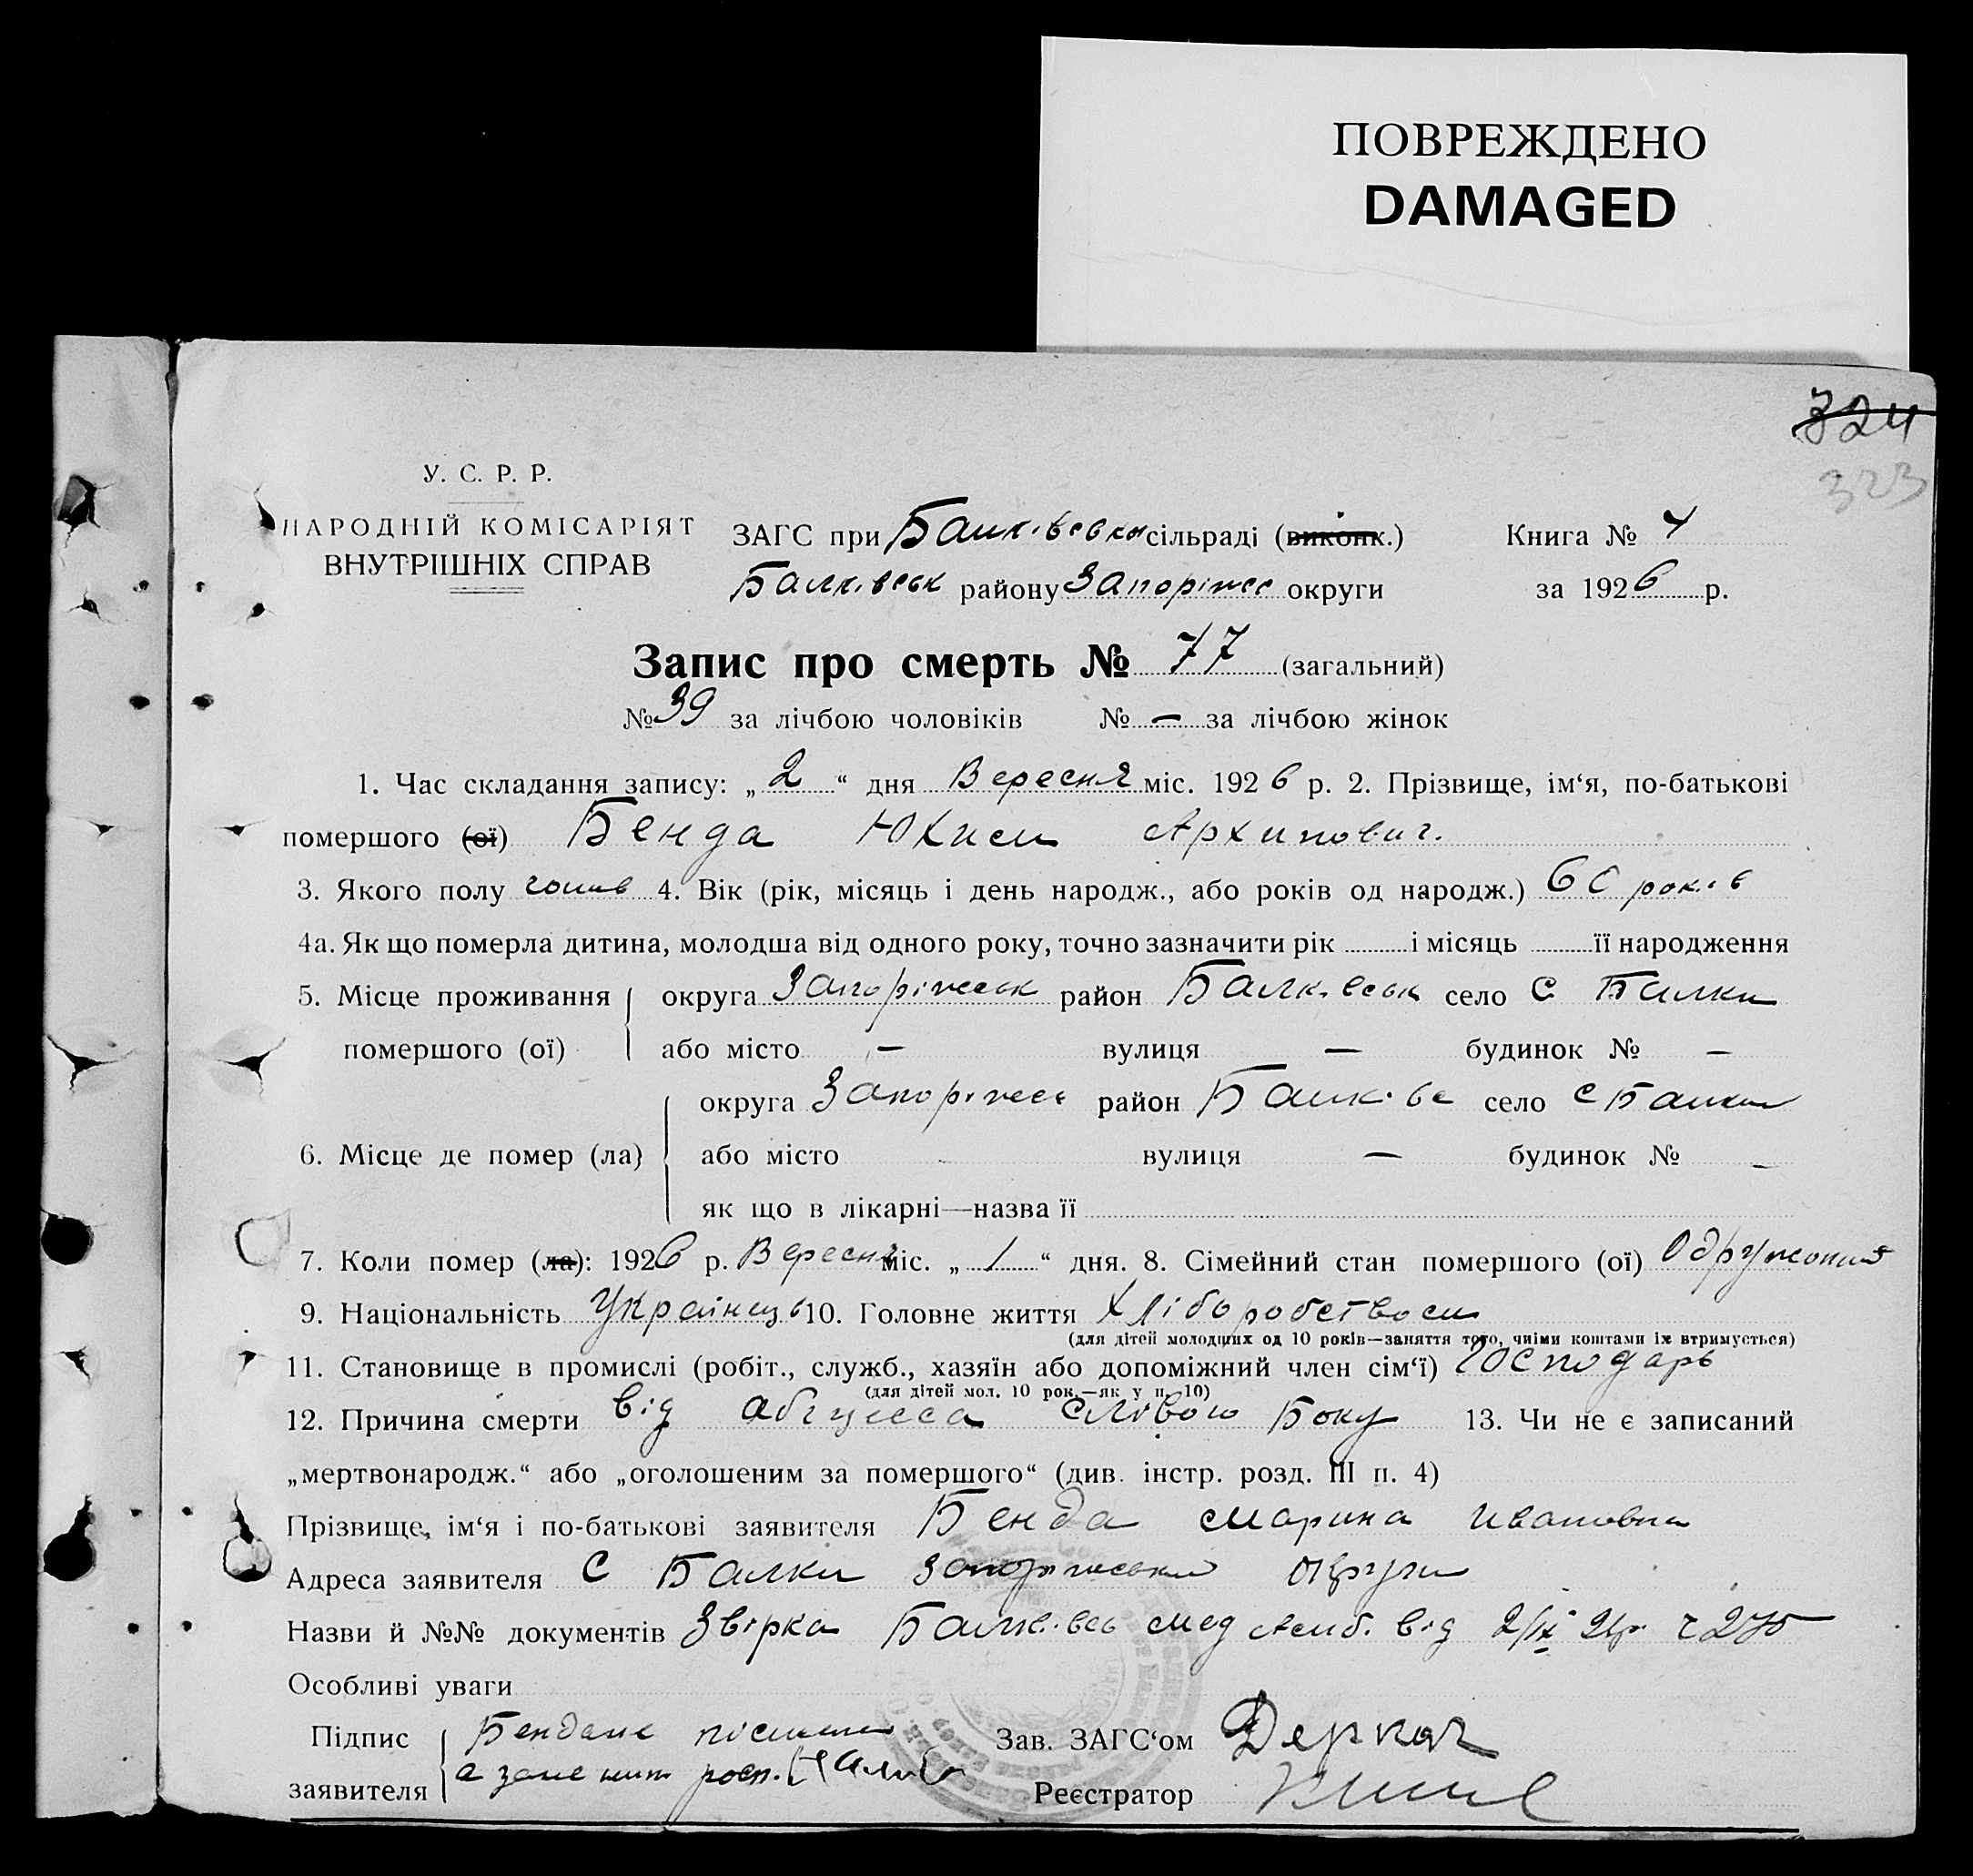 ПОВРЕЖДЕНО
DAMAGED
324
323
У. С. Р. Р.
НАРОДНІЙ КОМІСАРІЯТ
ВНУТРІШНІХ СПРАВ
ЗАГС при Балківськ сільраді (виконк.)
Книга №
Балківськ району Запоріжс округи
за 1926 р.
Запис про смерть № 77 (загальний)
№ 39 за лічбою чоловіків № — за лічбою жінок
1. Час складання запису: „2“ дня Вересня міс. 1926 р. 2. Прізвище, ім‘я, по-батькові
помершого (ої) Бенда Юхим Архипович.
3. Якого полу чолов 4. Вік (рік, місяць і день народж., або років од народж.) 60 років
4а. Як що померла дитина, молодша від одного року, точно зазначити рік і місяць її народження
5. Місце проживання округа Запоріжськ район Балківськ село с Балки
помершого (ої) або місто — вулиця — будинок № —
округа Запоріжсь район Балківс село с Балки
6. Місце де помер (ла) або місто вулиця — будинок № —
як що в лікарні—назва її
7. Коли помер (ла): 1926 р. Вересня міс. „1“ дня. 8. Сімейний стан помершого (ої) Одружоний
9. Національність Українець 10. Головне життя Хліборобством
(для дітей молодщих од 10 років—заняття того, чиїми коштами їх втримується)
11. Становище в промислі (робіт., служб., хазяїн або допоміжний член сім‘ї) Господарь
(для дітей мол. 10 рок.—як у п. 10)
12. Причина смерти від абсцесса з лівого боку 13. Чи не є записаний
„мертвонародж.“ або „оголошеним за помершого“ (див. інстр. розд. III п. 4)
Прізвище, ім‘я і по-батькові заявителя Бенда Марина Ивановна
Адреса заявителя С Балки Запоріжської округи
Назви й №№ документів Звірка Балківсь мед Амб. від 2/IX 26р. ч 275
Особливі уваги
Підпис
заявителя
а за не росп.
Зав. ЗАГС‘ом Деркач
Реєстратор